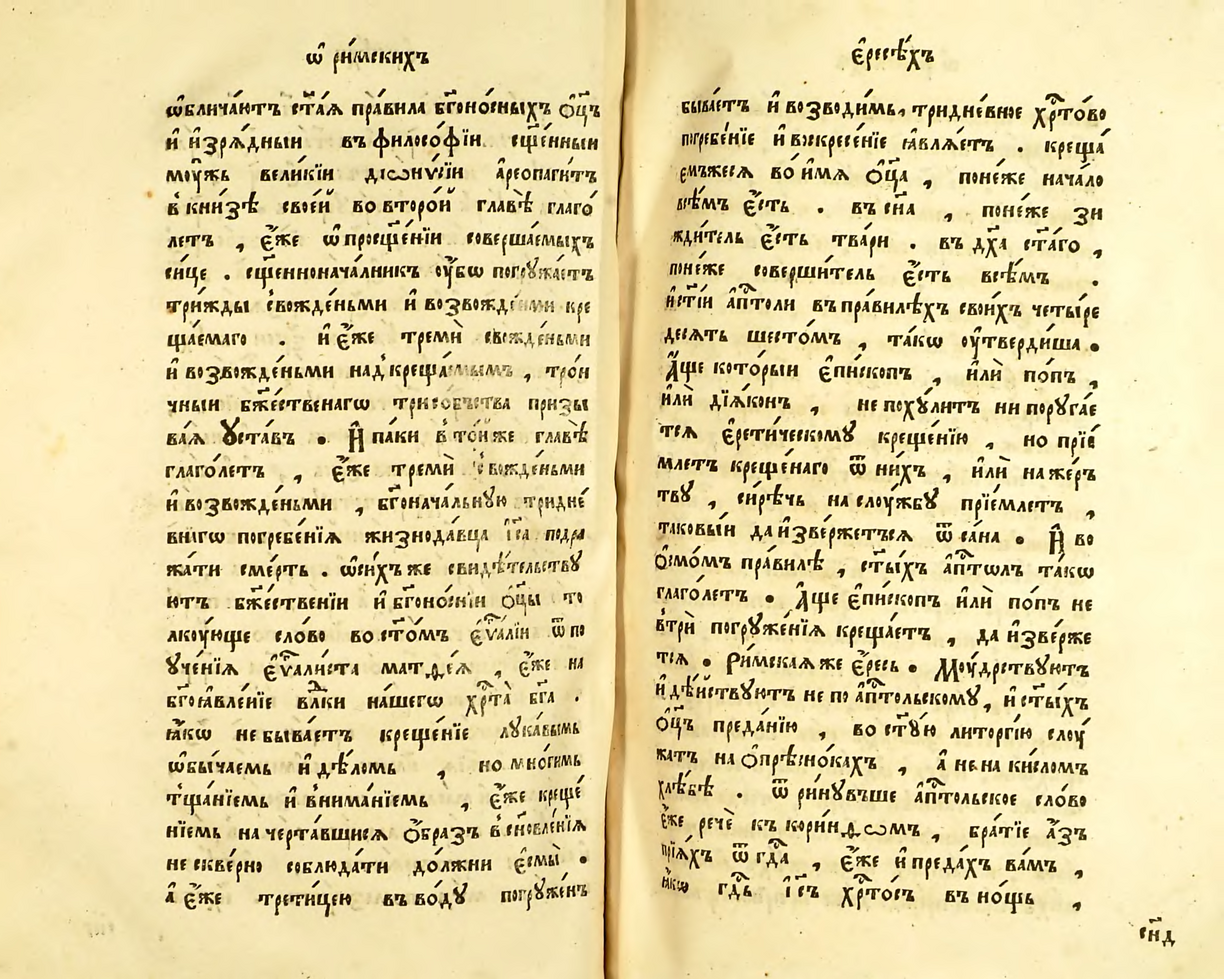 ѡ҆ ри́мскихъ
ѡ҆бличаютъ ст҃а́ѧ пра́вила бг҃оно́сныхъ ѻ҆ц҃ъ
и҆ и҆зрѧ́дныи въ филосо́фїи сщ҃е́нныи
моу́жь вели́кїи дїѡни́сїи а҆реопаги́тъ
в кни́зѣ свое́й во второ́й главѣ̀ глаго́
летъ , є҆́же ѡ҆ просщ҃е́нїи соверша́емыхъ
си́це . сщ҃еннонача́лникъ ᲂу҆́бѡ погрꙋжа́етъ
три́жды свожде́ньми и҆ возвожде́ньми кре
ща́емаго . и҆ є҆́же тремѝ свожде́ньми
и҆ возвожде́ньми над̾ креща́емымъ , трои
чныи бж҃е́ственагѡ трисо́бства призы
ва́ѧ ᲂу҆ста́въ . И҆ па́ки в то́йже главѣ̀
глаго́летъ , є҆́же тремѝ свожде́ньми
и҆ возвожде́ньми , бг҃онача́льнꙋю тридне́
внагѡ погребе́нїѧ жизнода́вца і҆с҃а подра
жа́ти сме́рть . ѡ҆ си́хъ же свидѣ́тельствꙋ
ютъ бж҃е́ственїи и҆ бг҃оно́снїи ѻ҆ц҃ы̀ то
лкоу́юще сло́во во ст҃о́мъ є҆ѵ҃а́лїи ѿ по
ꙋче́нїѧ є҆ѵ҃али́ста матѳе́ѧ , є҆́же на
бг҃оꙗ҆вле́нїе вл҃ки на́шегѡ хрⷭ҇та̀ бг҃а .
ꙗ҆́кѡ не быва́етъ креще́нїе лꙋка́вымь
ѡ҆бы́чаемь и҆ дѣ́ломь , но мно́гимь
тща́нїемь и҆ внима́нїемь , є҆́же креще́
нїемь начерта́вшиисѧ ѻ҆́бразъ всн҃овле́нїѧ
не скве́рно соблюда́ти до́лжни є҆смы̀ .
а҆ є҆́же трети́цею въ во́дꙋ погрꙋже́нъ
є҆ресѣ́хъ
быва́етъ и҆ возводи́мь, тридне́вное хрⷭ҇то́во
погребе́нїе и҆ въскресе́нїе ꙗ҆влѧ́етъ . креща́
емъжесѧ во и҆́мѧ ѻ҆ц҃а̀ , поне́же нача́ло
всѣ́мъ є҆́сть . въ сн҃а , поне́же зи
жди́тель є҆́сть тва́ри . въ дх҃а ст҃а́го ,
поне́же соверши́тель є҆́сть всѣ́мъ .
и҆ ст҃і́и а҆пⷭ҇толи въ пра́вилѣхъ свои́хъ четы́ре
десѧть шесто́мъ , та́кѡ ᲂу҆тверди́ша .
А҆́ще кото́рыи є҆пи́скопъ , и҆лѝ по́пъ ,
и҆лѝ дїѧ́конъ , не похꙋ́литъ ни порꙋга́е
тсѧ є҆рети́ческомꙋ креще́нїю , но прїе́
млетъ креще́наго ѿ ни́хъ , и҆лѝ на же́ръ
твꙋ , си́рѣчь на слоу́жбꙋ прїе́млетъ ,
таковы́и да и҆зве́ржетъсѧ ѿ са́на . И҆ во
ѻ҆смо́мъ пра́вилѣ , ст҃ы́хъ а҆пⷭ҇тѡлъ та́кѡ
глаго́летъ . А҆́ще є҆пи́скопъ и҆лѝ по́пъ не
в трѝ погрꙋже́нїѧ креща́етъ , да и҆зве́рже
тсѧ . Ри́мскаѧ же є҆́ресь . Моу́дрствꙋютъ
и҆ дѣ́йствꙋютъ не по а҆пⷭ҇тольскомꙋ, и҆ ст҃ы́хъ
ѻ҆ц҃ъ преда́нїю , во ст҃ꙋ́ю литоргі́ю слоу́
жатъ на ѻ҆прѣсно́кахъ , а҆ не на ки́сломъ
хлѣ́бѣ . ѿри́нꙋвъше а҆пⷭ҇тольское сло́во
є҆́же речѐ къ кори́нѳѡмъ , бра́тїе а҆́зъ
прїѧ́хъ ѿ гдⷭ҇а , є҆́же и҆ преда́хъ ва́мъ ,
ꙗ҆́кѡ гдⷭ҇ь і҆с҃ъ хрⷭ҇то́съ въ но́щь ,
сн҃д